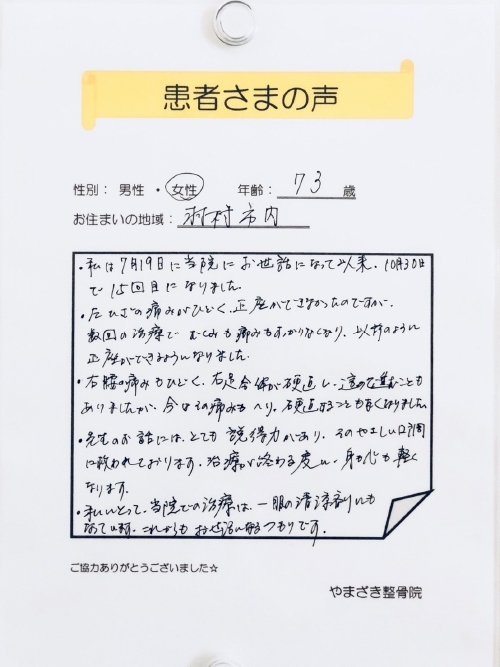 患者さまの声
性別: 男性 ・ 女性 年齢: 73 歳
お住まいの地域: 羽村市内
・私は7月19日に当院にお世話になって以来、10月30日
で15回目になりました。
・左ひざの痛みがひどく、正座ができなかったのですが、
数回の治療で むくみも痛みもすっかりなくなり、以前のように
正座ができるようになりました。
・右腰の痛みもひどく、右足全体が硬直し、
ありましたが、今はその痛みもへり、硬直することも良くなりました
・先生のお話には、とても説得力があり、そのやさしい口調
に救われております。治療が終わる度に、身も心も軽く
なります。
・私にとって、当院での治療は、一服の清涼剤にも
なっています。これからもお世話になるつもりです。
ご協力ありがとうございました☆
やまざき整骨院